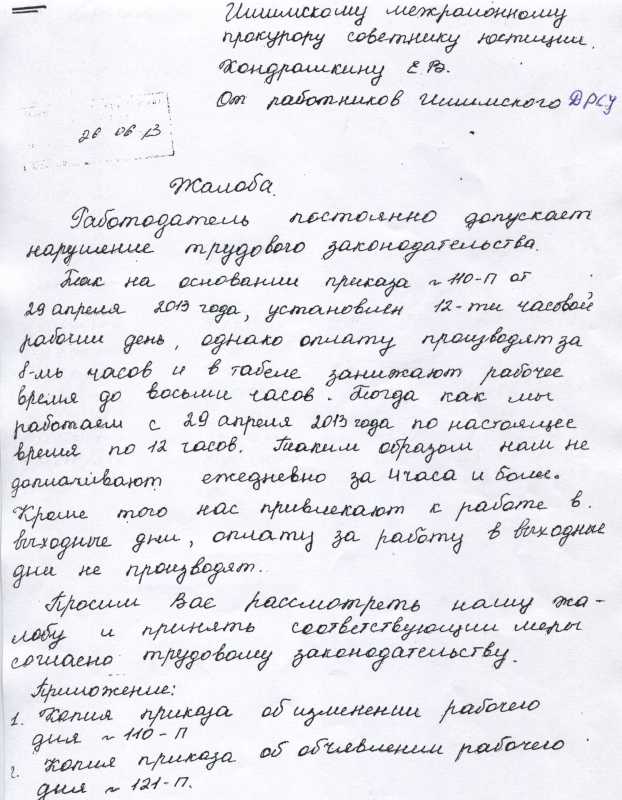 Ишимскому межрайонному
прокурору советнику юстиции.
Хондрашкину Е.В.
От работников Ишимского ДРСУ
26 06 13
Жалоба.
Работодатель постоянно допускает
нарушение трудового законодательства.
Так на основании приказа ~ 110-П от
29 апреля 2013 года, установлен 12-ти часовой
рабочий день, однако оплату производят за
8-мь часов и в табеле занижают рабочее
время до восьми часов. Тогда как мы
работаем с 29 апреля 2013 года по настоящее
время по 12 часов. Таким образом нам не
доплачивают ежедневно за 4 часа и более.
Кроме того нас привлекают к работе в
выходные дни, оплату за работу в выходные
дни не производят.
Просим Вас рассмотреть нашу жа-
лобу и принять соответствующии меры
согласно трудовому законодательству.
Приложение:
1. Копия приказа об изменении рабочего
дня ~ 110-П
2. Копия приказа об объявлении рабочего
дня ~ 121-П.